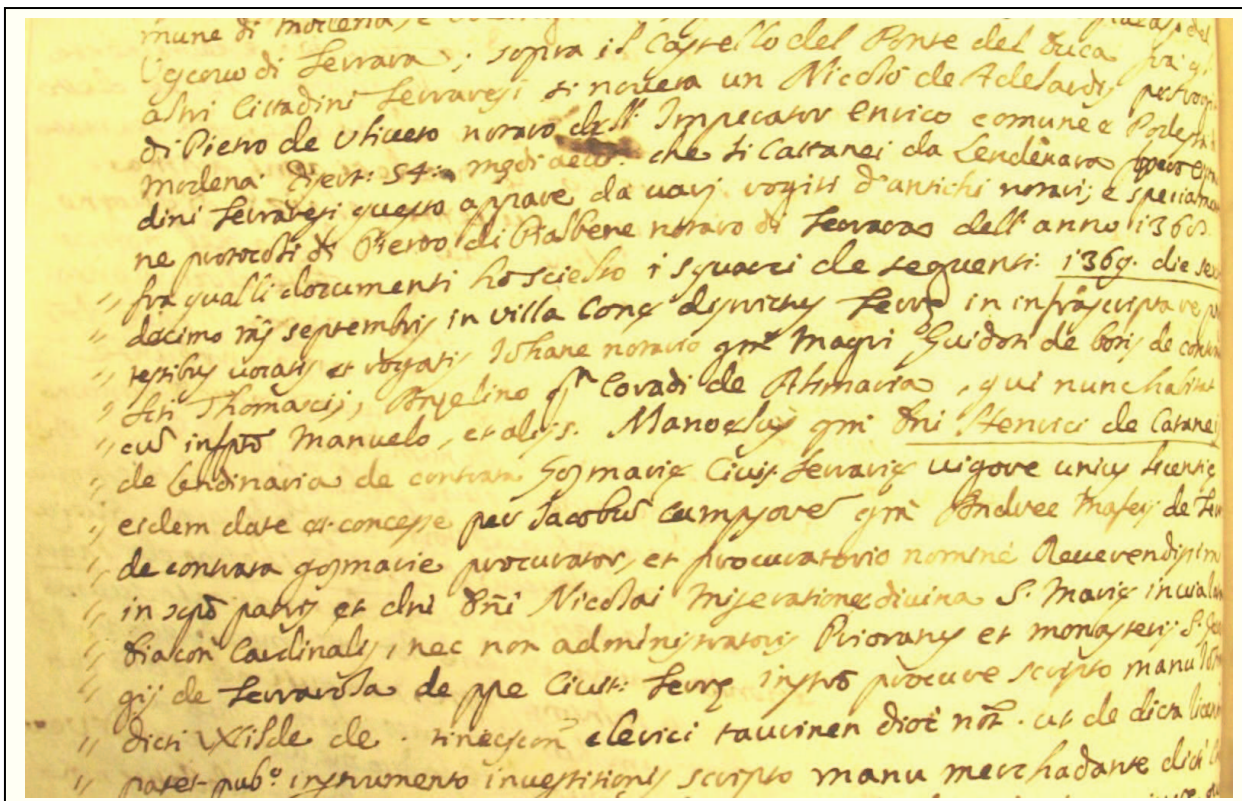 mune di Modena, e
Vescovo di Ferrara; sopra il Castello del Ponte del Duca fra gl
altri Cittadini Ferraresi si novera un Nicolò de Adelardi
di Pietro de Uliveto notaro dell' Imperator Enrico comune e Podestà
Modena che li Cattanei da Lendenara
dini Ferraresi questo appare da varj rogiti d'antichi notari; e specialmen
ne protocolli di Pietro di Pialbene notaro di Ferrara dell' anno 1360.
fra qualli documenti ho scielto i squarci de seguenti. 1369. die sex
" decimo mẽs septembris in villa Conę districtus Ferrę in infrascripta
" testibus vocatis et rogatis, Iohane notario qm̃ Magri Guidoti de boris de contra
" Sti Thomacij, Anzelino qm̃ Coradi de , qui nunc habitat
" cũ infrõ Manuelo, et alijs. Manoelus qm̃ Dni Henrici de Catanei
" de Lendinaria de contrata Gosmarię Civit. Ferrarię vigore unius licentię
" eidem date et concesse per Jacobũ campsorẽ qm̃ Andree Mafei de
" de contrata gosmarie procurator, et procuratorio nomine Reverendissim
" in xpõ patris et dni Dñi Nicolai Miseratione divina S. Marię in vialata
" diacon Cardinalis, nec non administratoris Prioratus et monasterij S.
" gij de Ferrariola de ppe Civit: Ferrę instrõ procure scripto manu
" dicti de . clerici taurinen dioč not. ut de dicta licen
" patet pubᵒ instrumento investitionis scripto manu merchadante dicti